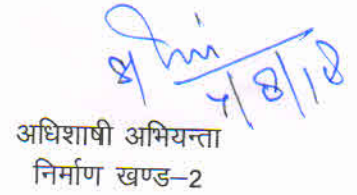 4/8/18
अधिशाषी अभियन्ता
निर्माण खण्ड–2